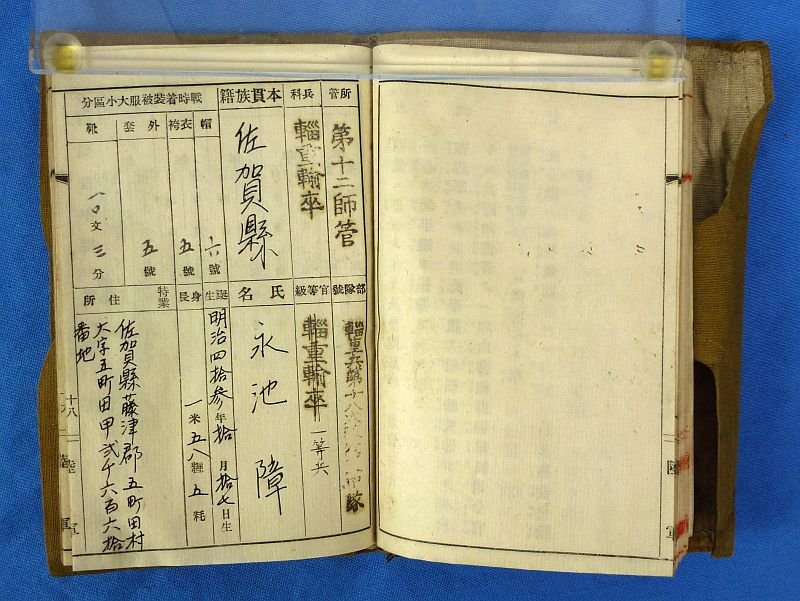 所管
第十二師管
兵科
輜重輸卒
本貫族籍
佐賀縣
戰時着裝被服大小區分
帽
六號
衣袴
五號
外套
五號
靴
一〇文三分
部隊號
輜重兵第十八大隊
官等級
輜重輸卒
一等兵
氏名
永池 障
誕生
明治四拾參年拾月拾七日生
身長
一米五八糎五粍
特業
住所
佐賀縣藤津郡五町田村
大字五町田甲貳千六百六拾
番地
十八
陸軍
陸軍